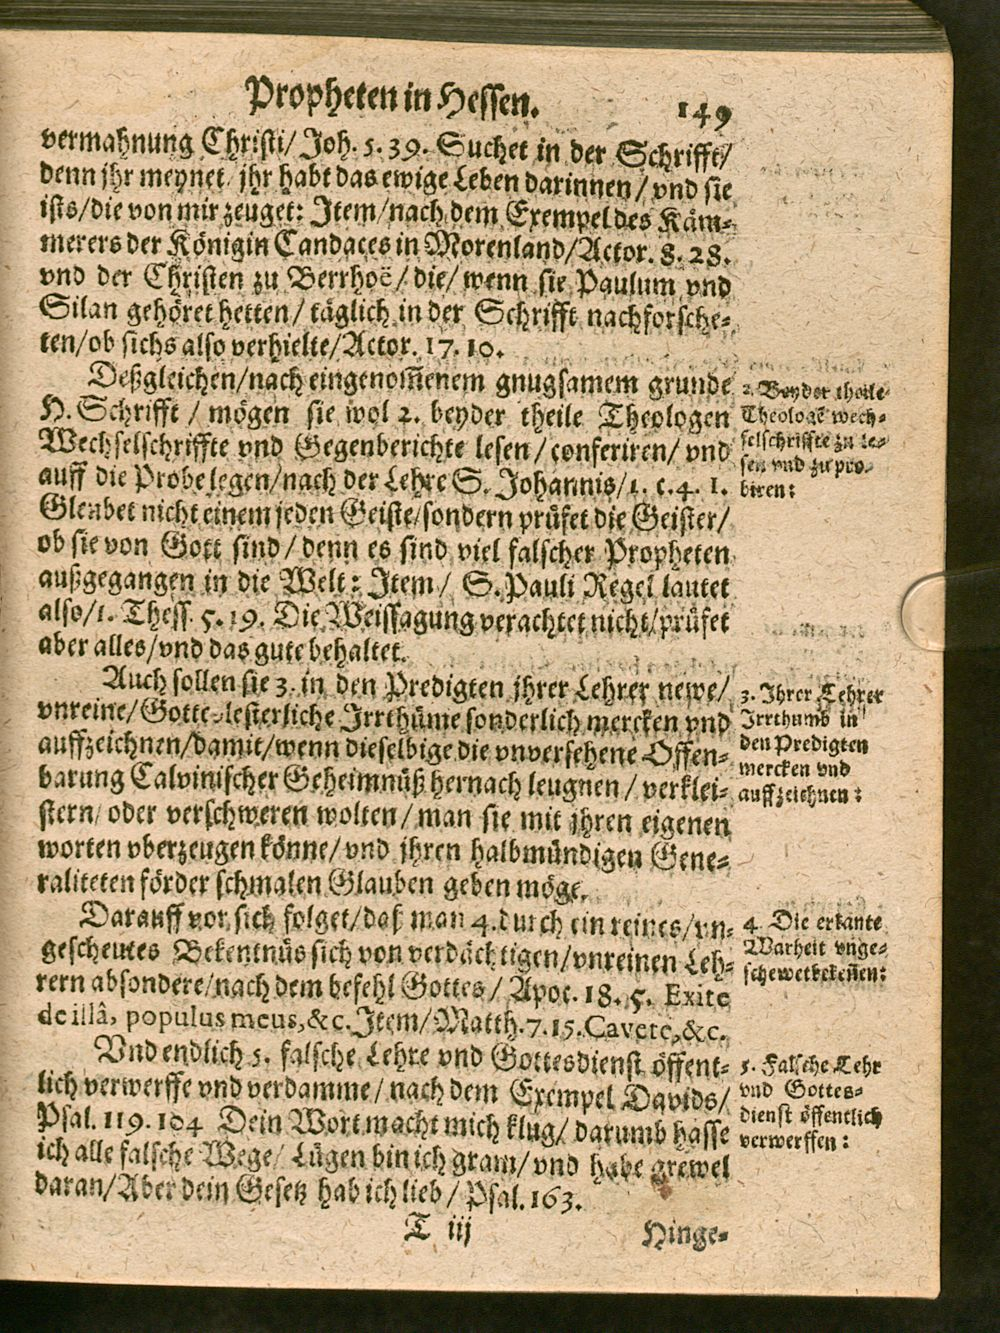 Propheten in Hessen. 149
vermahnung Christi/ Joh. 5. 39. Suchet in der Schrifft/
denn jhr meynet/ jhr habt das ewige Leben darinnen/ vnd sie
ists/ die von mir zeuget: Item/ nach dem Exempel des Käm-
merers der Königin Candaces in Morenland/ Actor. 8. 28.
vnd der Christen zu Berrhoë/ die/ wenn sie Paulum vnd
Silan gehöret hetten/ täglich in der Schrifft nachforsche-
ten/ ob sichs also verhielte/ Actor. 17. 10.
Deßgleichen/ nach eingenom̃enem gnugsamem grunde
H. Schrifft / mögen sie wol 2. beyder theile Theologen
Wechselschriffte vnd Gegenberichte lesen / conferiren/ vnd
auff die Probe legen/ nach der Lehre S. Johannis/ 1. c. 4. 1.
Gleubet nicht einem jeden Geiste/ sondern prüfet die Geister/
ob sie von Gott sind / denn es sind viel falscher Propheten
außgegangen in die Welt: Item/ S. Pauli Regel lautet
also/ 1. Thess. 5. 19. Die Weissagung verachtet nicht/ prüfet
aber alles/ vnd das gute behaltet.
2. Beyder theile
Theologē wech-
selschriffte zu le-
sen vnd zu pro-
biren:
Auch sollen sie 3. in den Predigten jhrer Lehrer newe/
vnreine/ Gotteslesterliche Irrthüme sonderlich mercken vnd
auffzeichnen/ damit/ wenn dieselbige die vnversehene Offen-
barung Calvinischer Geheimnüß hernach leugnen / verklei-
stern/ oder verschweren wolten / man sie mit jhren eigenen
worten vberzeugen könne/ vnd jhren halbmündigen Gene-
raliteten förder schmalen Glauben geben möge.
3. Ihrer Lehrer
Irrthumb in
den Predigten
mercken vnd
auffzeichnen:
Darauff vor sich folget/ daß man 4. durch ein reines/ vn-
gescheutes Bekentnüs sich von verdächtigen/ vnreinen Leh-
rern absondere/ nach dem befehl Gottes / Apoc. 18. 5. Exite
de illâ, populus meus, &c. Item/ Matth. 7. 15. Cavete, &c.
4. Die erkante
Warheit vnge-
schewet bekeñen:
Vnd endlich 5. falsche Lehre vnd Gottesdienst öffent-
lich verwerffe vnd verdamme / nach dem Exempel Davids/
Psal. 119. 104 Dein Wort macht mich klug/ darumb hasse
ich alle falsche Wege/ Lügen bin ich gram/ vnd habe grewel
daran/ Aber dein Gesetz hab ich lieb / Psal. 163.
5. Falsche Lehr
vnd Gottes-
dienst öffentlich
verwerffen:
T iij Hinge-